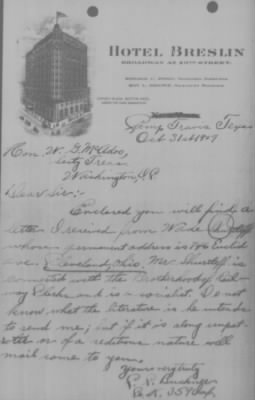 HOTEL BRESLIN
BROADWAY AT 29TH STREET.
Camp Travis Texas
Oct 31st 1917
Hon. W. G. McAdoo,
Secty Treas.
Washington, D.C.
Dear Sir:-
Enclosed you will find a
letter I received from Wade Shurtleff
whose permanent address is 706 Euclid
ave. Cleveland, Ohio. Mr Shurtleff is
connected with the Brotherhood of Rail-
way Clerks and is a socialist. Do not
know what the literature is he intends
to send me; but if it is along unpat-
riotic or of a seditious nature will
mail some to you.
Yours very truly
Co. K. 359 Inf.